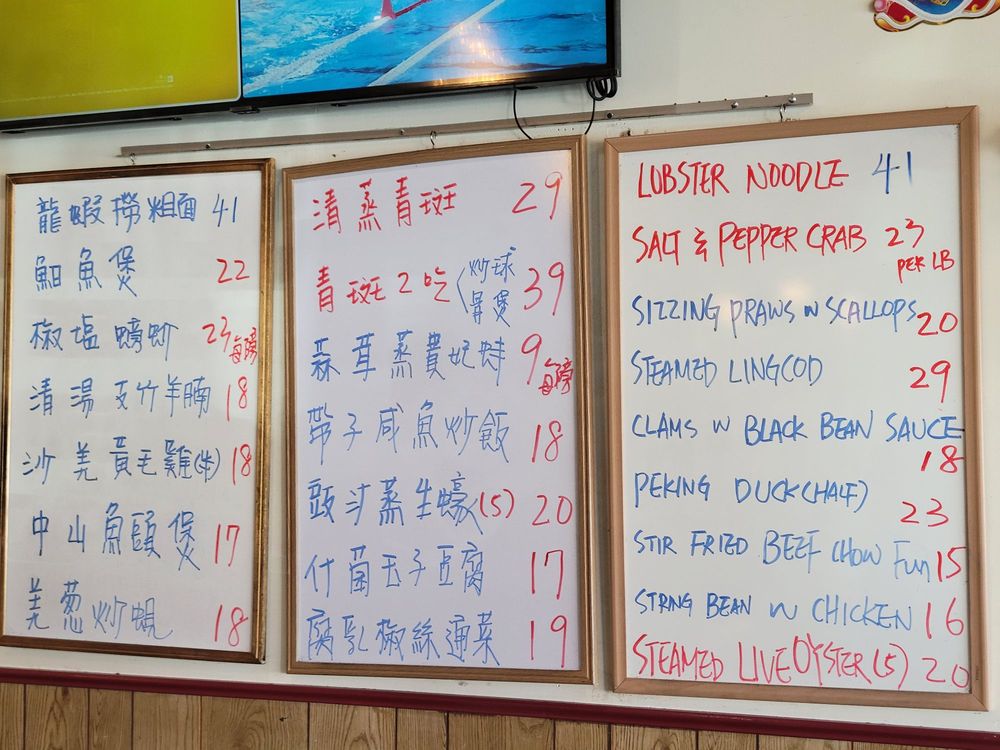 龍蝦撈粗面 41
魚煲 22
椒塩螃蚧 23 每磅
清湯支竹羊腩 18
沙羌黃毛雞(半) 18
中山魚頭煲 17
羌葱炒蜆 18
清蒸青斑 29
青斑2吃 炒球 骨煲 39
蒜茸蒸貴妃蚌 9 每磅
帶子咸魚炒飯 18
豉汁蒸生蠔(5) 20
什菌玉子豆腐 17
腐乳椒絲通菜 19
LOBSTER NOODLE 41
SALT & PEPPER CRAB 23
PER LB
SIZZING PRAWS W SCALLOPS 20
STEAMED LINGCOD 29
CLAMS W BLACK BEAN SAUCE
18
PEKING DUCK (HALF) 23
STIR FRIED BEEF CHOW Fun 15
STRING BEAN W CHICKEN 16
STEAMED LIVE OYSTER (5) 20